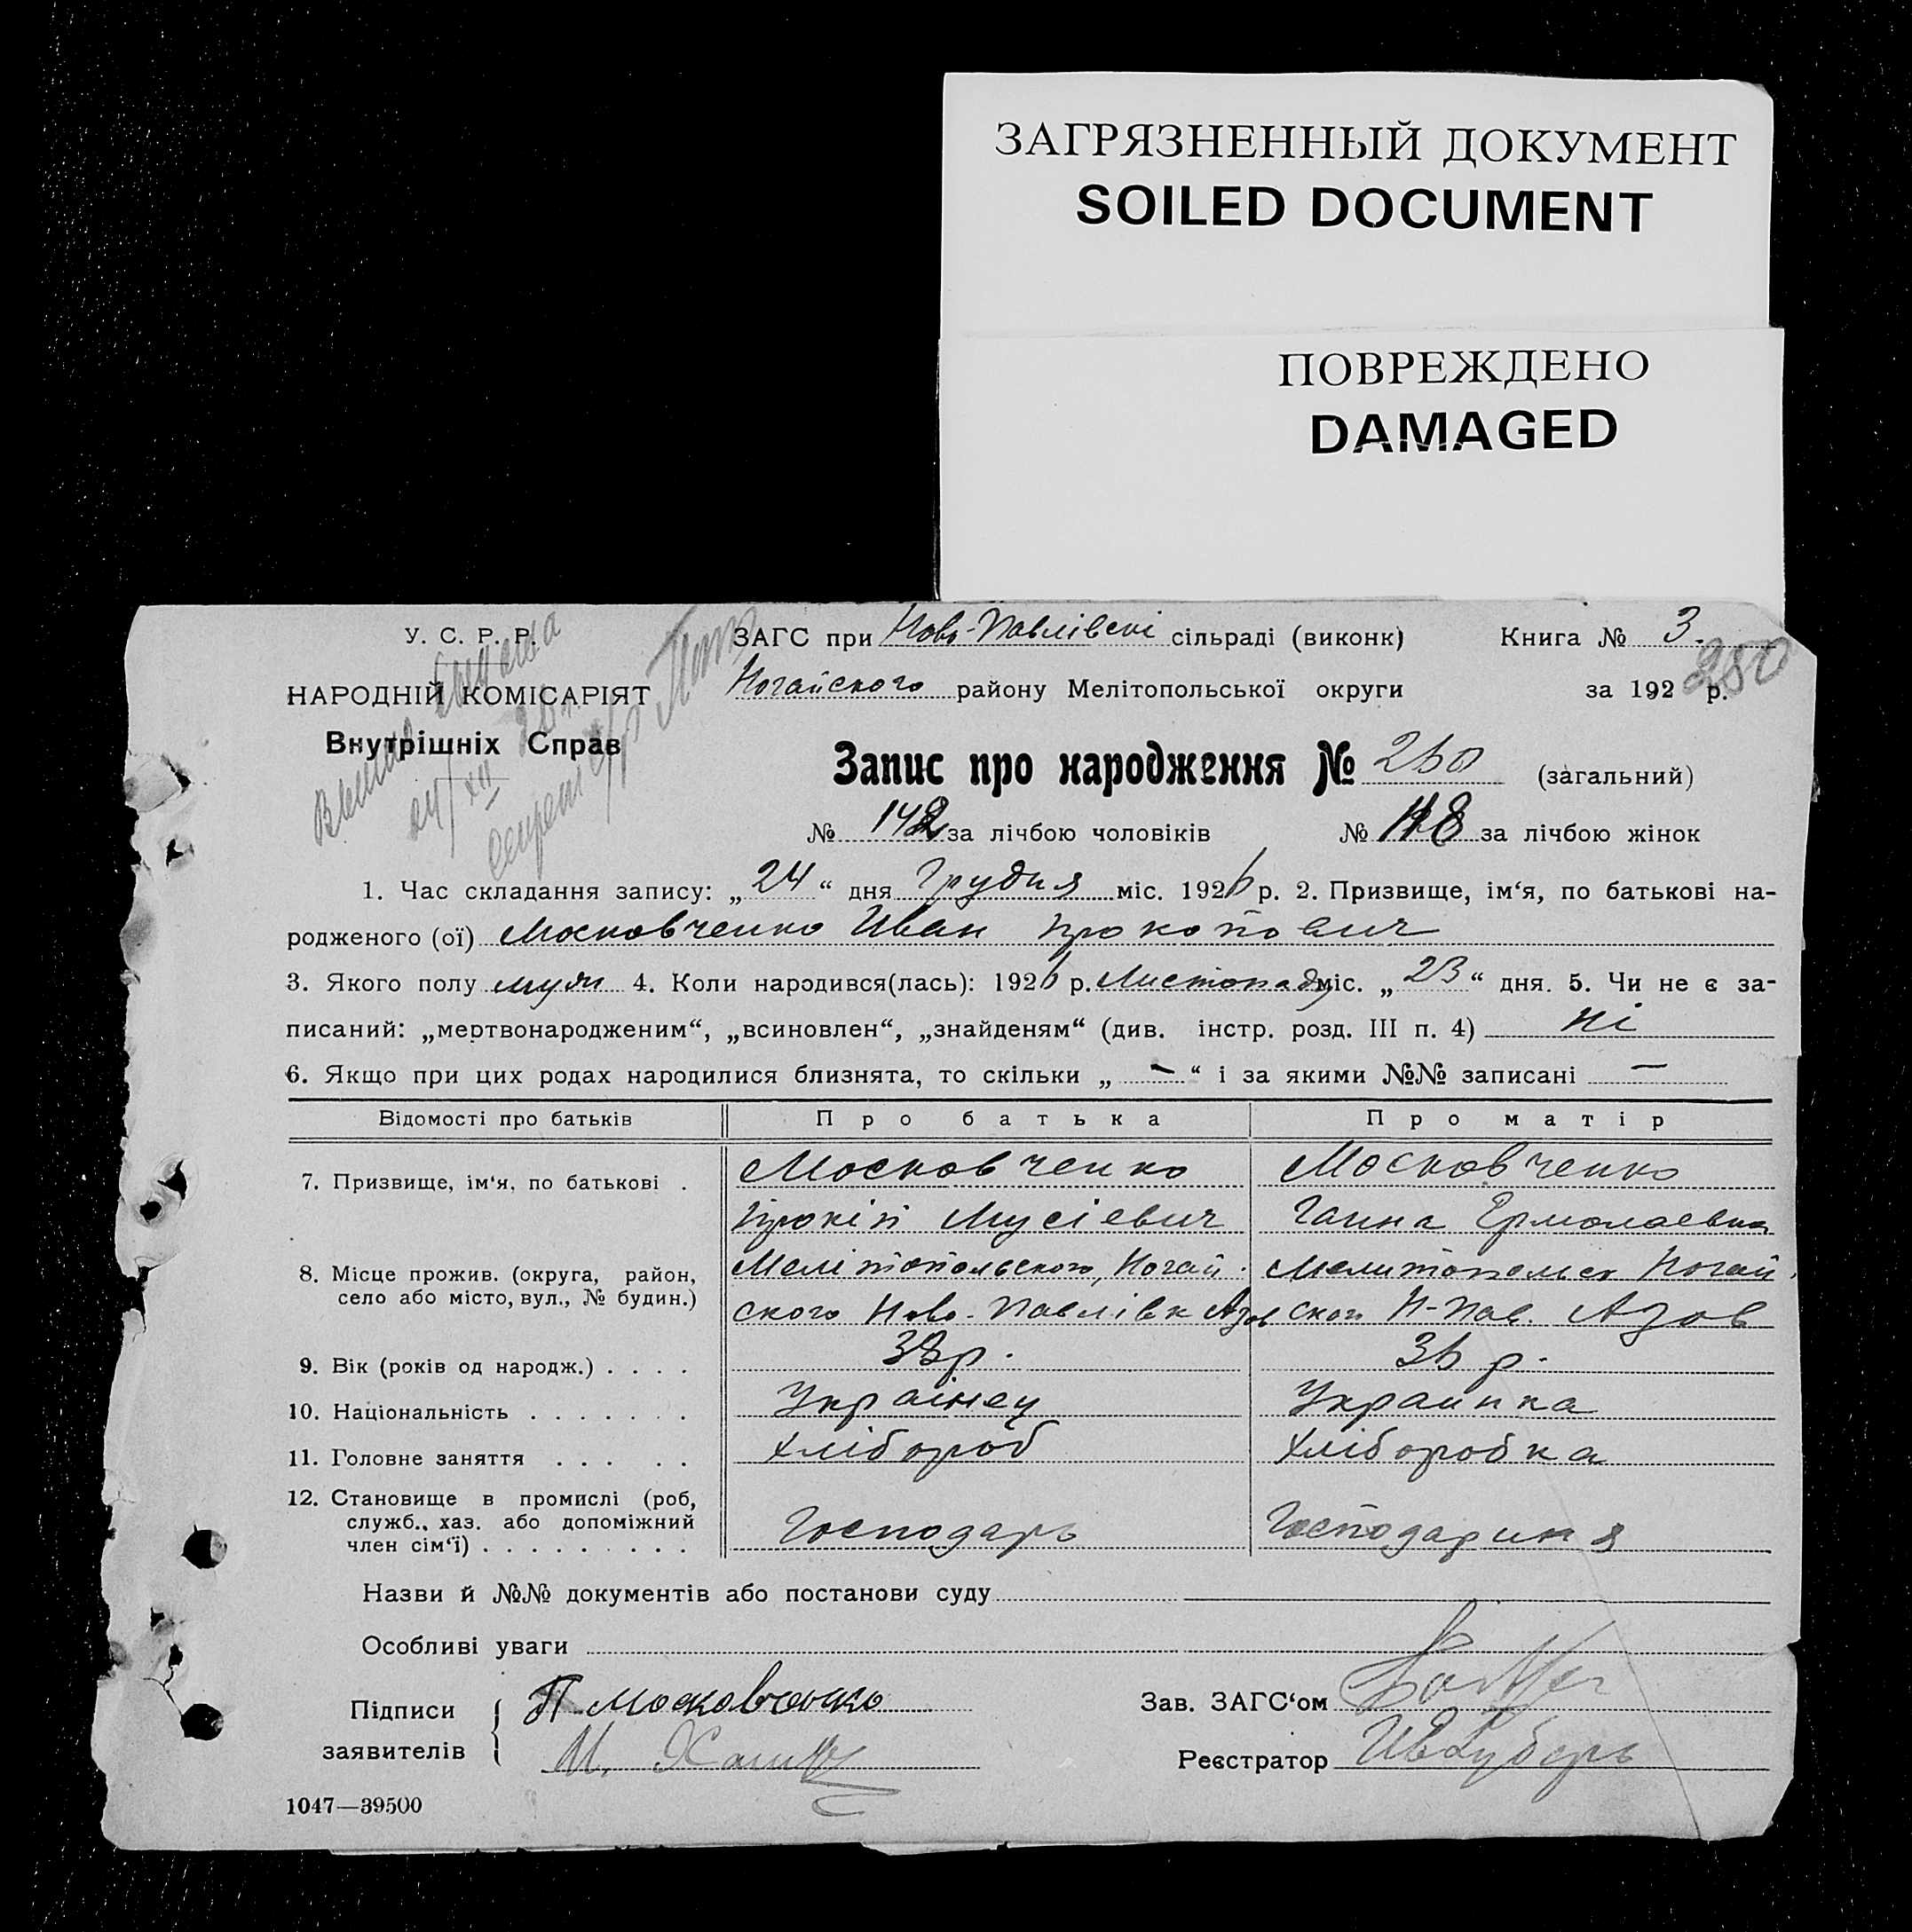 ЗАГРЯЗНЕННЫЙ ДОКУМЕНТ
SOILED DOCUMENT
ПОВРЕЖДЕНО
DAMAGED
У. С. Р. Р.
НАРОДНІЙ КОМІСАРІЯТ
Внутрішніх Справ
ЗАГС при Ново-Павлівскі сільраді (виконк) Книга № 3.
Ногайского району Мелітопольської округи за 192 р.
280
Запис про народження № 260 (загальний)
№ 142 за лічбою чоловіків № 118 за лічбою жінок
1. Час складання запису: „24“ дня Грудня міс. 1926 р. 2. Призвище, ім‘я, по батькові на-
родженого (ої) Московченко Иван Прокопович
3. Якого полу муж 4. Коли народився(лась): 1926 р. Листопада міс. „23“ дня. 5. Чи не є за-
писаний: „мертвонародженим“, „всиновлен“, „знайденям“ (див. інстр. розд. III п. 4) ні
6. Якщо при цих родах народилися близнята, то скільки „ — “ і за якими №№ записані —
Відомості про батьків Про батька Про матір
7. Призвище, ім‘я, по батькові . Московченко Московченко
Прокіп Мусіевич Ганна Ермолаевна
8. Місце прожив. (округа, район, Мелітопольського, Ногай- Мелитопольск Ногай
село або місто, вул., № будин.) ского Ново-Павлівк Азов ског Н-Пав. Азов
9. Вік (років од народж.) . . . . 38р. 36 р.
10. Національність . . . . . . . Українец Украинка
11. Головне заняття . . . . . Хлібороб Хліборобка
12. Становище в промислі (роб,
служб., хаз. або допоміжний
член сім‘ї) . . . . . . . . . Господарь Господариня
Назви й №№ документів або постанови суду
Особливі уваги
Підписи П Московченко Зав. ЗАГС‘ом
заявителів И. Реєстратор
1047—39500